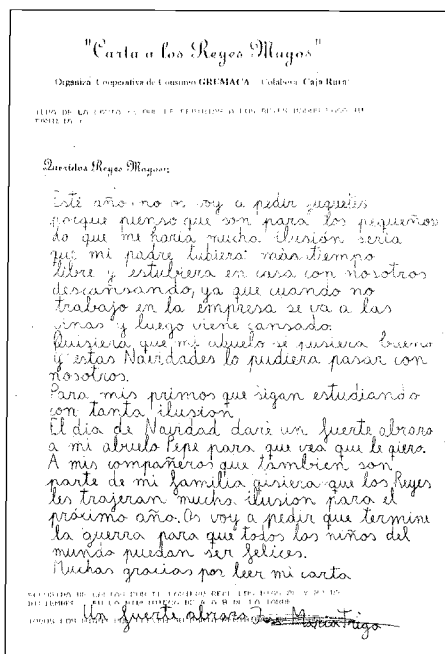 "Carta a los Reyes Magos"
Organiza: Cooperativa de Consumo GREMACA Colabora: Caja Rural
Queridos Reyes Magos:
Este año no os voy a pedir juguetes
porque pienso que son para los pequeños
Lo que me haría mucha ilusión sería
que mi padre tubiera más tiempo
libre y estubiera en casa con nosotros
descansando, ya que cuando no
trabajo en la empresa se va a las
viñas y luego viene cansado.
Quisiera que mi abuelo se pusiera bueno
y estas Navidades lo pudiera pasar con
nosotros.
Para mis primos que sigan estudiando
con tanta ilusion
El día de Navidad daré un fuerte abrazo
a mi abuelo Pepe para que vea que le qiero.
A mis compañeros que tambien son
parte de mi familia qisiera que los Reyes
les trajeran mucha ilusion para el
próximo año. Os voy a pedir que termine
la guerra para que todos los niños del
mundo puedan ser felices.
Muchas gracias por leer mi carta
Un fuerte abrazo Maria Trigo